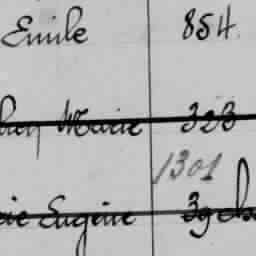 Emile 854.
Marie 323
1301
Eugène